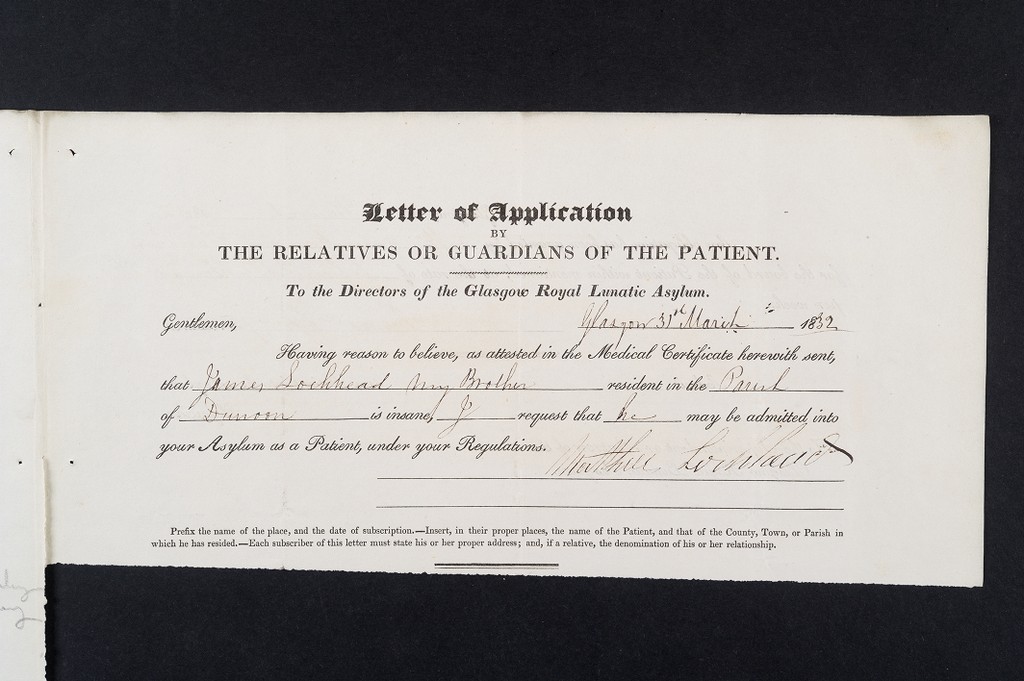 Letter of Application
BY
THE RELATIVES OR GUARDIANS OF THE PATIENT.
To the Directors of the Glasgow Royal Lunatic Asylum.
Gentlemen, Glasgow 31st March 1832
Having reason to believe, as attested in the Medical Certificate herewith sent,
that James Lochhead my Brother resident in the Parish
of Dunoon is insane, I request that he may be admitted into
your Asylum as a Patient, under your Regulations.
Matthew Lochhead
Prefix the name of the place, and the date of subscription.—Insert, in their proper places, the name of the Patient, and that of the County, Town, or Parish in
which he has resided.—Each subscriber of this letter must state his or her proper address; and, if a relative, the denomination of his or her relationship.